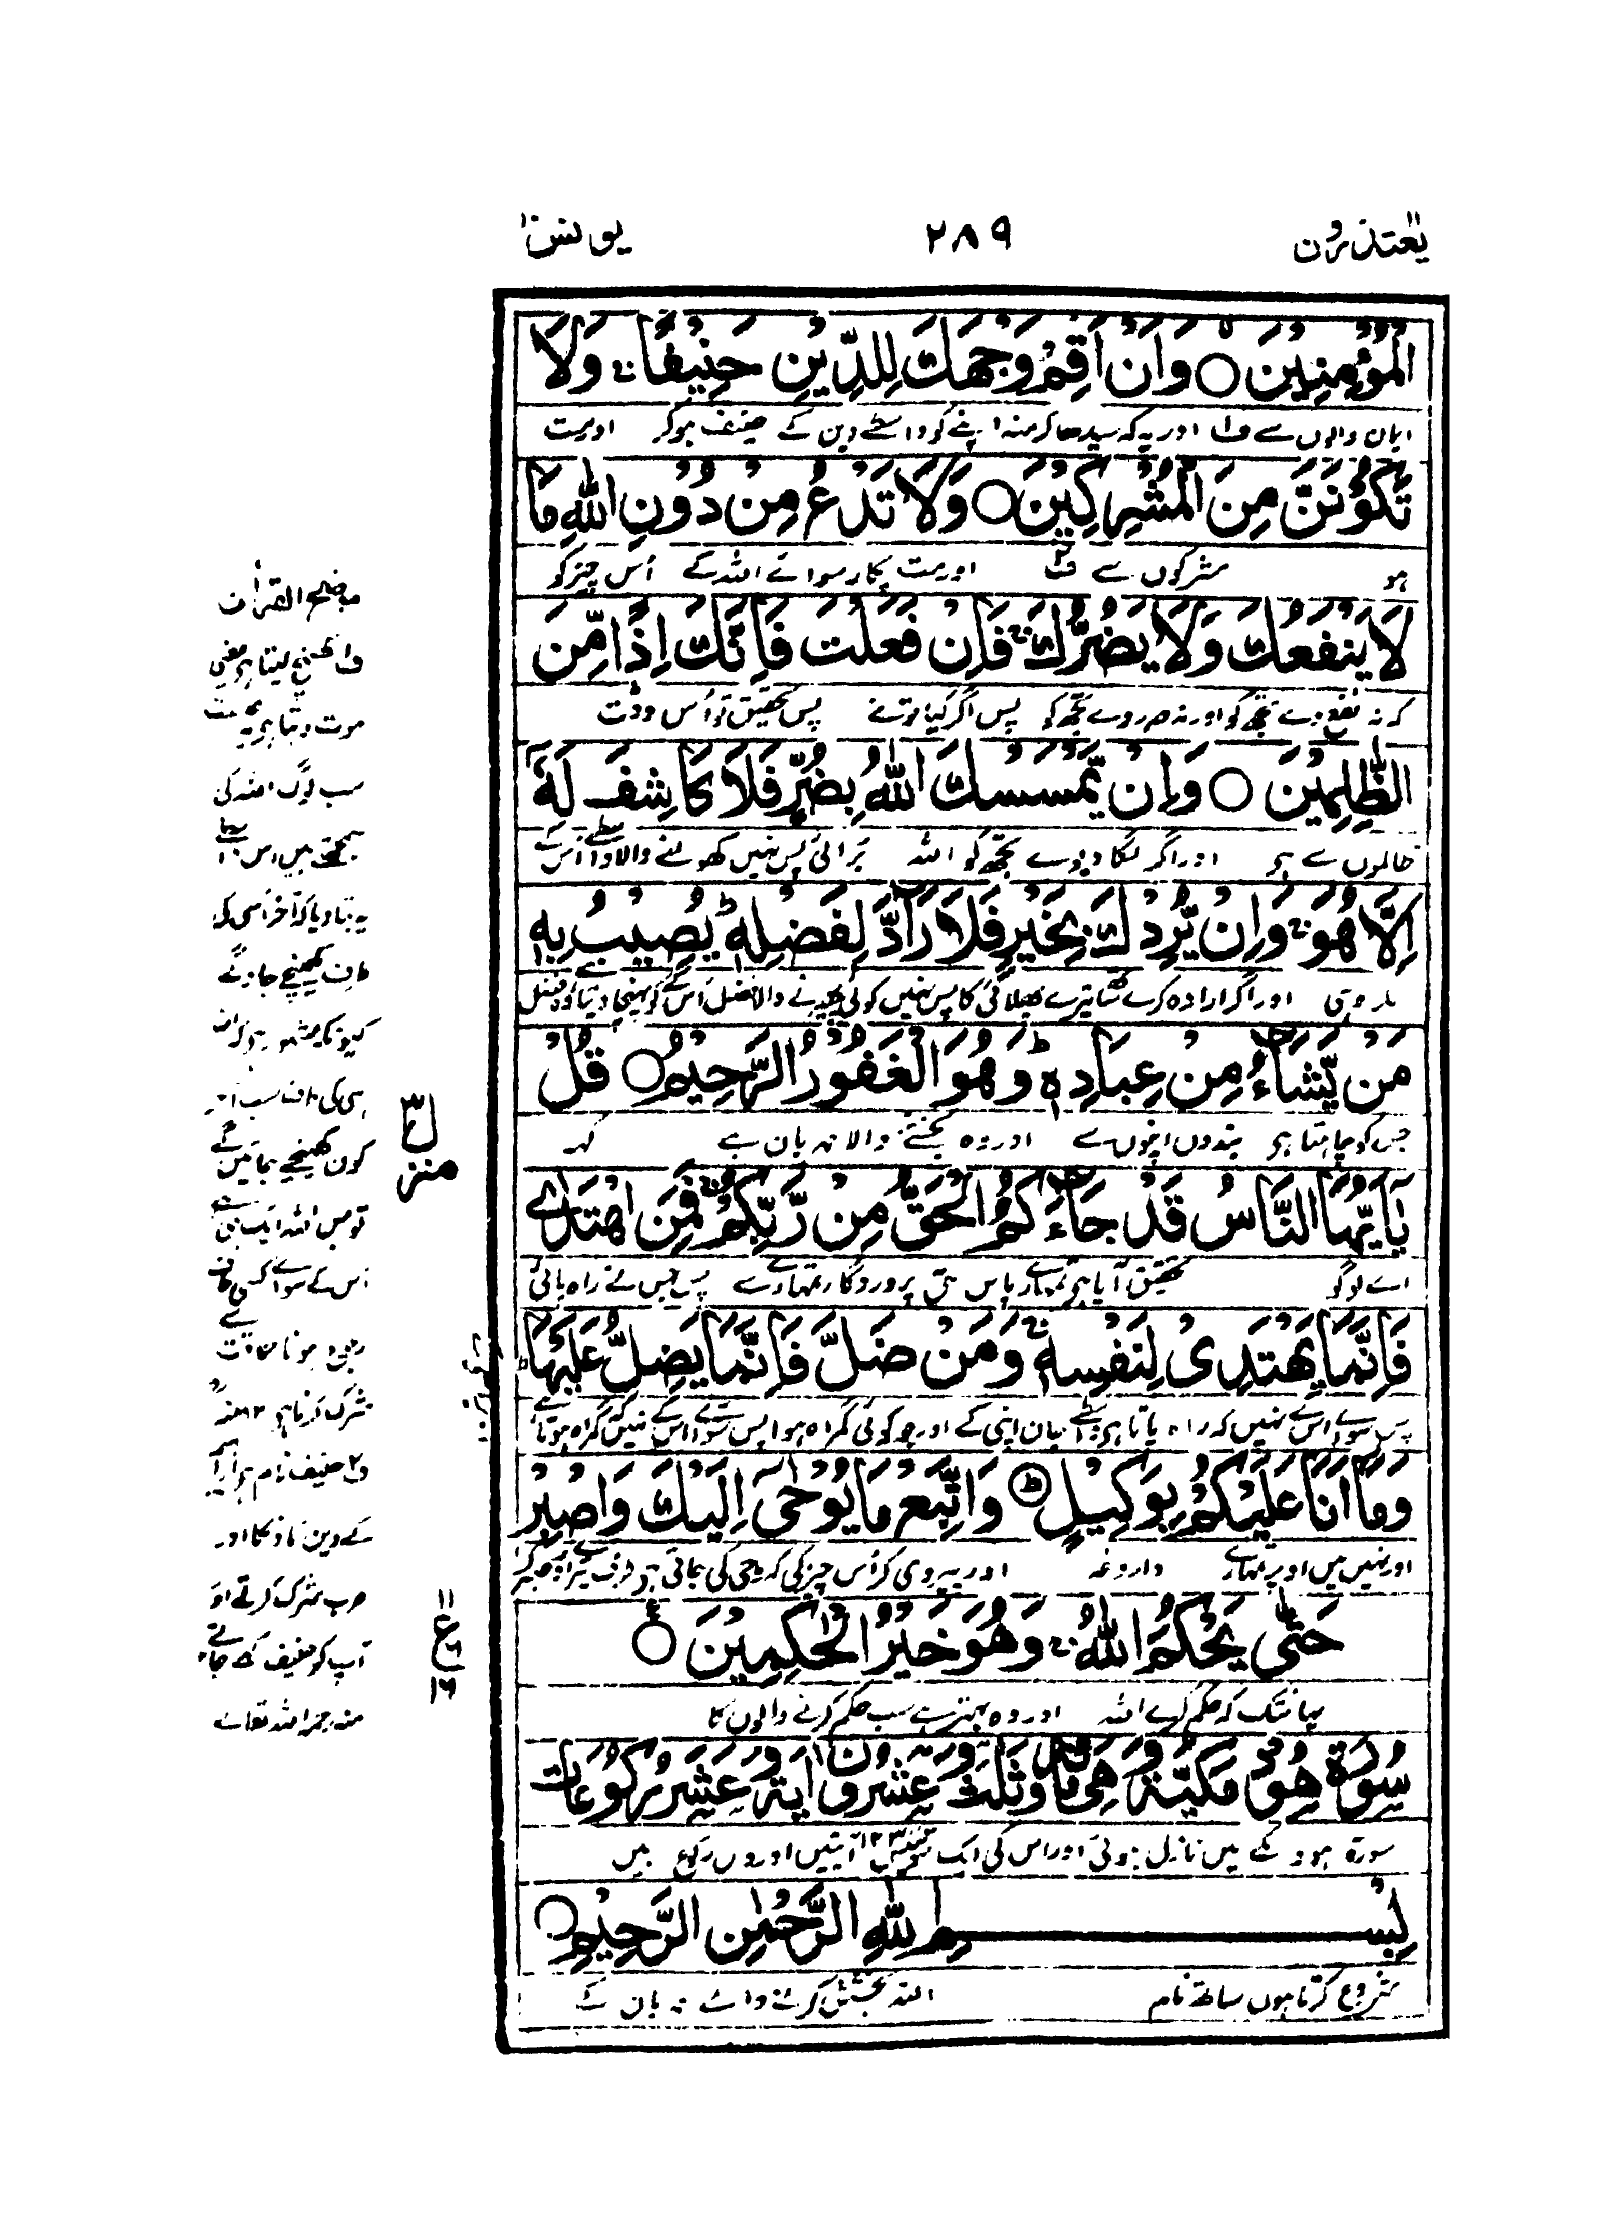 یعتذرون
۲۸۹
یونس ۱۰
الْمُؤْمِنِيْنَ ○ وَاَنْ اَقِمْ وَجْهَكَ لِلدِّيْنِ حَنِيْفًا ۚ وَلَا
ایمان والوں سے ف۱ اور یہ کہ سیدھا کر منہ اپنے کو واسطے دین کے حنیف ہو کر اور مت
تَكُوْنَنَّ مِنَ الْمُشْرِكِيْنَ ○ وَلَا تَدْعُ مِنْ دُوْنِ اللّٰهِ مَا
ہو مشرکوں سے ف۲ اور مت پکار سوائے اللہ کے اُس چیز کو
لَا يَنْفَعُكَ وَلَا يَضُرُّكَ ۚ فَاِنْ فَعَلْتَ فَاِنَّكَ اِذًا مِّنَ
کہ نہ نفع دے تجھ کو اور نہ ضرر دے تجھ کو پس اگر کیا تو نے پس تحقیق تو اُس وقت
الظّٰلِمِيْنَ ○ وَاِنْ يَّمْسَسْكَ اللّٰهُ بِضُرٍّ فَلَا كَاشِفَ لَهٗۤ
ظالموں سے ہے اور اگر لگا دیوے تجھ کو اللہ بُرائی پس نہیں کھولنے والا واسطے اس کے
اِلَّا هُوَ ۚ وَاِنْ يُّرِدْكَ بِخَيْرٍ فَلَا رَآدَّ لِفَضْلِهٖ ؕ يُصِيْبُ بِهٖ
مگر وہی اور اگر ارادہ کرے ساتھ تیرے بھلائی کا پس نہیں کوئی پھیرنے والا فضل اُس کے کو پہنچا دیتا ہے وہ فضل
مَنْ يَّشَآءُ مِنْ عِبَادِهٖ ؕ وَهُوَ الْغَفُوْرُ الرَّحِيْمُ ○ قُلْ
جس کو چاہتا ہے بندوں اپنوں سے اور وہ بخشنے والا مہربان ہے کہہ
يٰۤاَيُّهَا النَّاسُ قَدْ جَآءَكُمُ الْحَقُّ مِنْ رَّبِّكُمْ ۚ فَمَنِ اهْتَدٰى
اے لوگو تحقیق آیا ہے تمہارے پاس حق پروردگار تمہارے سے پس جس نے راہ پائی
فَاِنَّمَا يَهْتَدِىْ لِنَفْسِهٖ ۚ وَمَنْ ضَلَّ فَاِنَّمَا يَضِلُّ عَلَيْهَا ؕ
پس سوائے اس کے نہیں کہ راہ پاتا ہے واسطے جان اپنی کے اور جو کوئی گمراہ ہوا پس سوائے اس کے نہیں کہ گمراہ ہوتا ہے
وَمَاۤ اَنَا عَلَيْكُمْ بِوَكِيْلٍ ؕ وَاتَّبِعْ مَا يُوْحٰۤى اِلَيْكَ وَاصْبِرْ
اور نہیں میں اوپر تمہارے داروغہ اور پیروی کر اُس چیز کی کہ وحی کی جاتی ہے طرف تیرے اور صبر کر
حَتّٰى يَحْكُمَ اللّٰهُ ۚ وَهُوَ خَيْرُ الْحٰكِمِيْنَ ○
یہاں تک کہ حکم کرے اللہ اور وہ بہتر ہے سب حکم کرنے والوں کا
سُوْرَةُ هُوْدٍ مَكِّيَّةٌ وَّهِىَ مِائَةٌ وَّثَلٰثٌ وَّعِشْرُوْنَ اٰيَةً وَّعَشَرُ رُكُوْعَاتٍ
سورة ہود مکے میں نازل ہوئی اور اس کی ایک سو تئیس ۱۲۳ آیتیں اور دس رکوع ہیں
بِسْمِ اللّٰهِ الرَّحْمٰنِ الرَّحِيْمِ ○
شروع کرتا ہوں ساتھ نام اللہ بخشش کرنے والے مہربان کے
موضح القرآن
ف۱ کھینچ لیتا ہے یعنی
موت دیتا ہے یہ
سب لوگ اللہ کی
سمجھتے ہیں اس سے
یہ بتا دیا کہ آخر اسی کی
طرف کھینچے جاؤ گے
اسی کی طرف سب
کون کھینچے جائیں گے
اس کے سوا کسی
شرک کرنا ہے ۱۲ منہ
ف۲ حنیف نام ہے
کے دین
عرب شرک کرتے اور
آپ کو حنیف کہے جاتے
منہ رحمہ اللہ تعالےٰ
منزل ۳
۱۱
ع
۶
۱۶